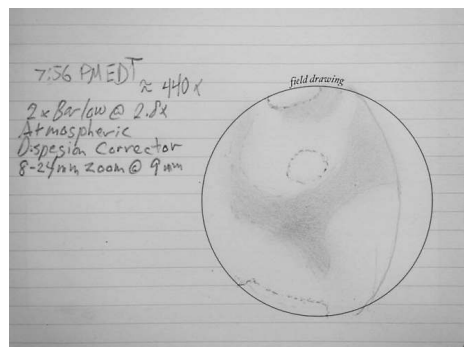 7:56 PM EDT
≈ 440x
2x Barlow @ 2.8x
Atmospheric
Dispesion Corrector
8-24mm Zoom @ 9mm
field drawing